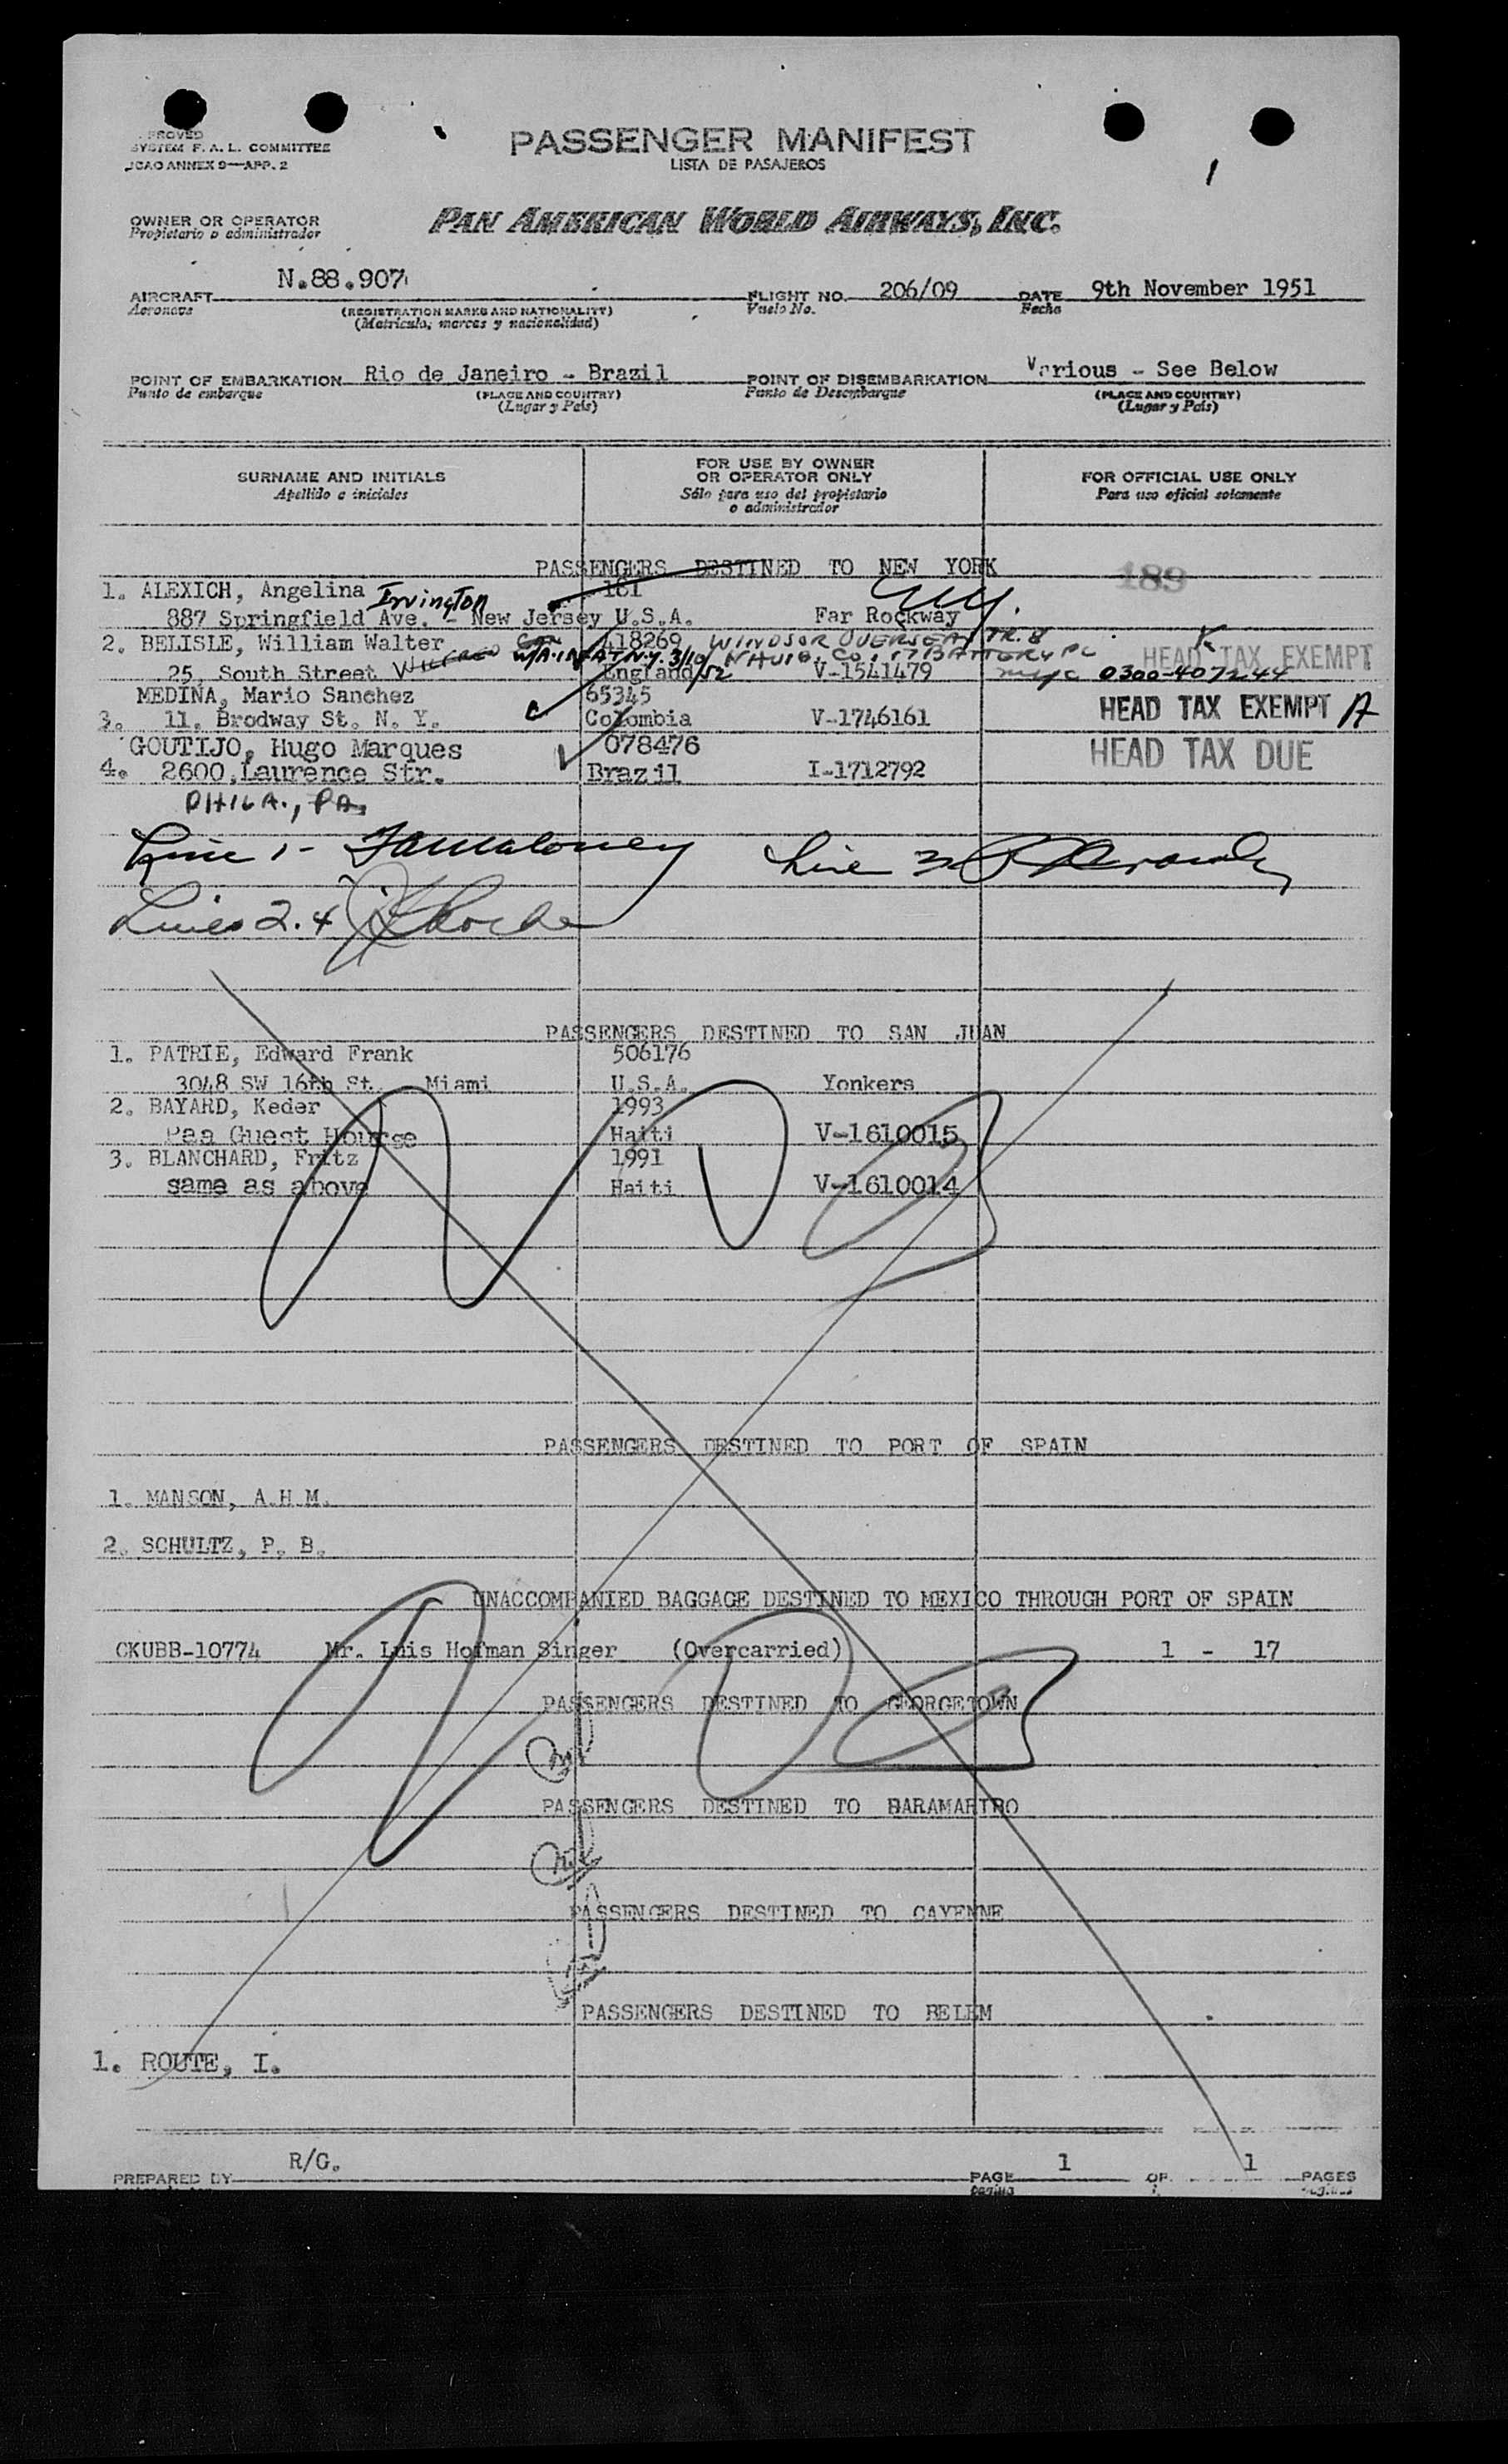 PROVED
SYSTEM F. A. L. COMMITTEE
ICAO ANNEX 9—APP. 2
PASSENGER MANIFEST
LISTA DE PASAJEROS
1
OWNER OR OPERATOR
Propietario o administrador
PAN AMERICAN WORLD AIRWAYS, INC.
AIRCRAFT N.88.907
Aeronave
(REGISTRATION MARKS AND NATIONALITY)
(Matricula, marcas y nacionalidad)
FLIGHT NO. 206/09
Vuelo No.
DATE 9th November 1951
Fecha
POINT OF EMBARKATION Rio de Janeiro - Brazil
Punto de embarque
(PLACE AND COUNTRY)
(Lugar y País)
POINT OF DISEMBARKATION Various - See Below
Punto de Desembarque
(PLACE AND COUNTRY)
(Lugar y País)
SURNAME AND INITIALS
Apellido e iniciales
FOR USE BY OWNER
OR OPERATOR ONLY
Sólo para uso del propietario
o administrador
FOR OFFICIAL USE ONLY
Para uso oficial solamente
PASSENGERS DESTINED TO NEW YORK
189
1. ALEXICH, Angelina Irvington 181
887 Springfield Ave. - New Jersey U.S.A. Far Rockway
2. BELISLE, William Walter 418269 WINDSOR OVERSEAS TR.
25, South Street England V-1541479 HEAD TAX EXEMPT
W/A. N.Y. 3/10/52 BATTERY PL
nyc 0300-407244
MEDINA, Mario Sanchez 65345
3. 11, Brodway St. N. Y. Colombia V-1746161 HEAD TAX EXEMPT A
GOUTIJO, Hugo Marques 078476
4. 2600,Laurence Str. Brazil I-1712792 HEAD TAX DUE
PHILA., PA.
Line 1- Line 3
Lines 2.4
PASSENGERS DESTINED TO SAN JUAN
1. PATRIE, Edward Frank 506176
3048 SW 16th St. Miami U.S.A. Yonkers
2. BAYARD, Keder 1993
Paa Guest Hourse Haiti V-1610015
3. BLANCHARD, Fritz 1991
same as above Haiti V-1610014
PASSENGERS DESTINED TO PORT OF SPAIN
1. MANSON, A.H.M.
2. SCHULTZ, P. B.
UNACCOMPANIED BAGGAGE DESTINED TO MEXICO THROUGH PORT OF SPAIN
CKUBB-10774 Mr. Luis Hofman Singer (Overcarried) 1 - 17
PASSENGERS DESTINED TO GEORGETOWN
nil
PASSENGERS DESTINED TO BARAMARIBO
nil
PASSENGERS DESTINED TO CAYENNE
PASSENGERS DESTINED TO BELEM
1. ROUTE, I.
PREPARED BY R/G.
PAGE 1 OF 1 PAGES